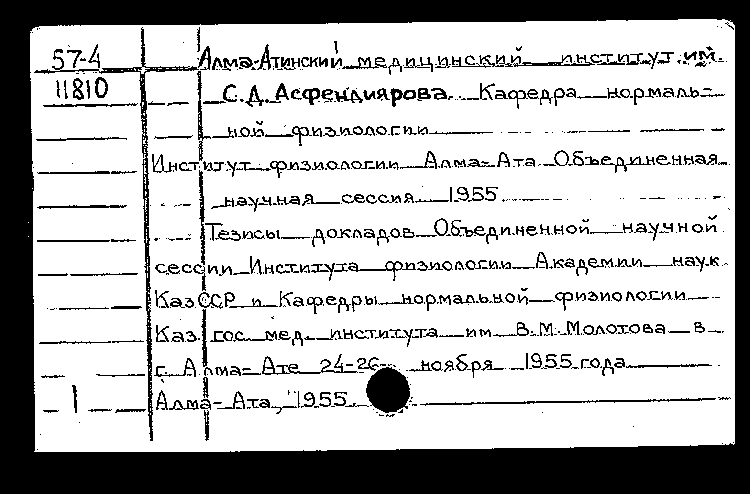 57-4 Алма-Атинский медицинский институт им.
11810 С.Д. Асфендиярова. Кафедра нормаль-
ной физиологии
Институт физиологии Алма-Ата Объединенная
научная сессия 1955
Тезисы докладов Объединенной научной
сессии Института физиологии Академии наук
КазССР и Кафедры нормальной физиологии
Каз. гос. мед. института им В.М. Молотова в
г. Алма-Ате 24-26 ноября 1955 года
1 Алма-Ата, 1955.